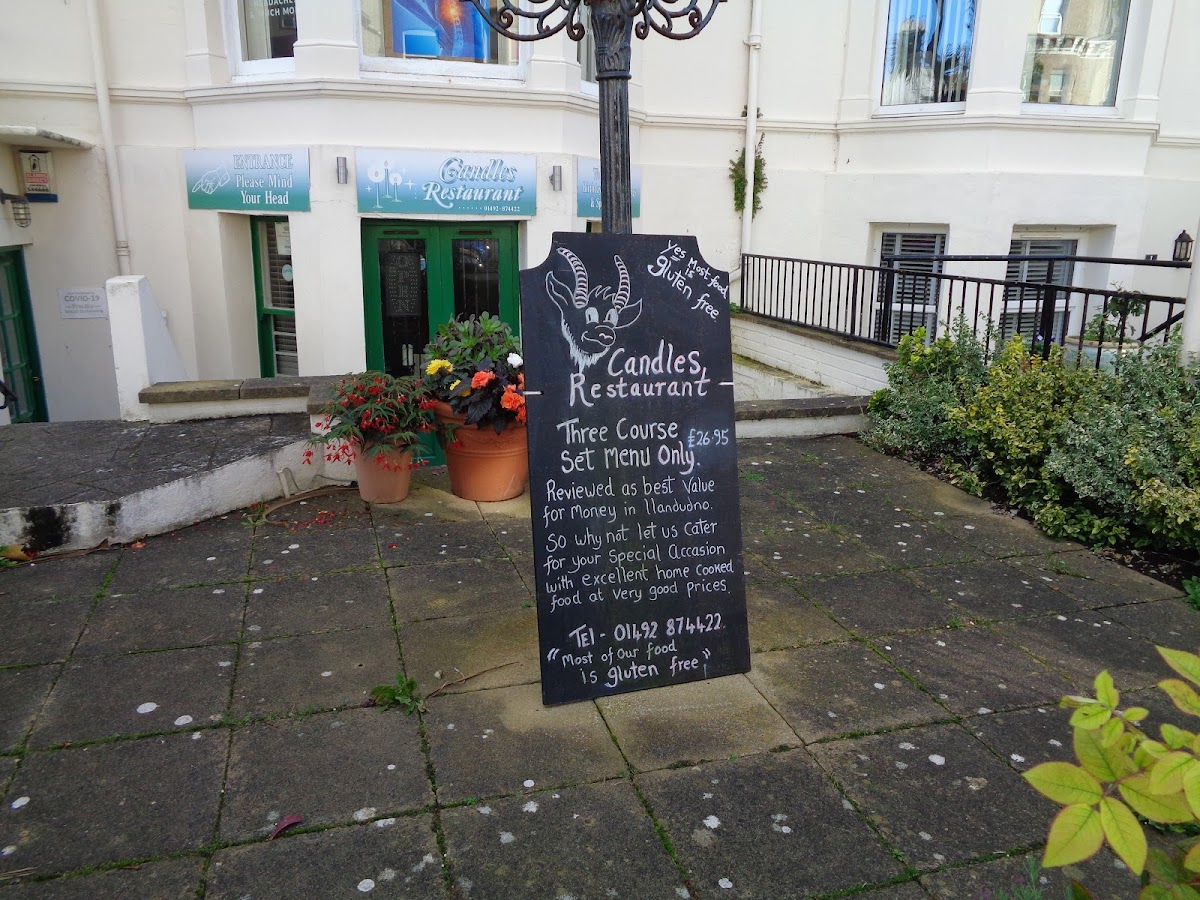 ENTRANCE
Please Mind
Your Head
Candles
Restaurant
01492-874422
COVID-19
yes Most food
is
gluten free
Candles
Restaurant
Three Course £26.95
Set Menu Only.
Reviewed as best Value
for Money in llandudno.
So why not let us Cater
for your Special Accasion
with excellent home Cooked
food at very good prices.
Tel - 01492 874422.
"Most of our food
is gluten free"